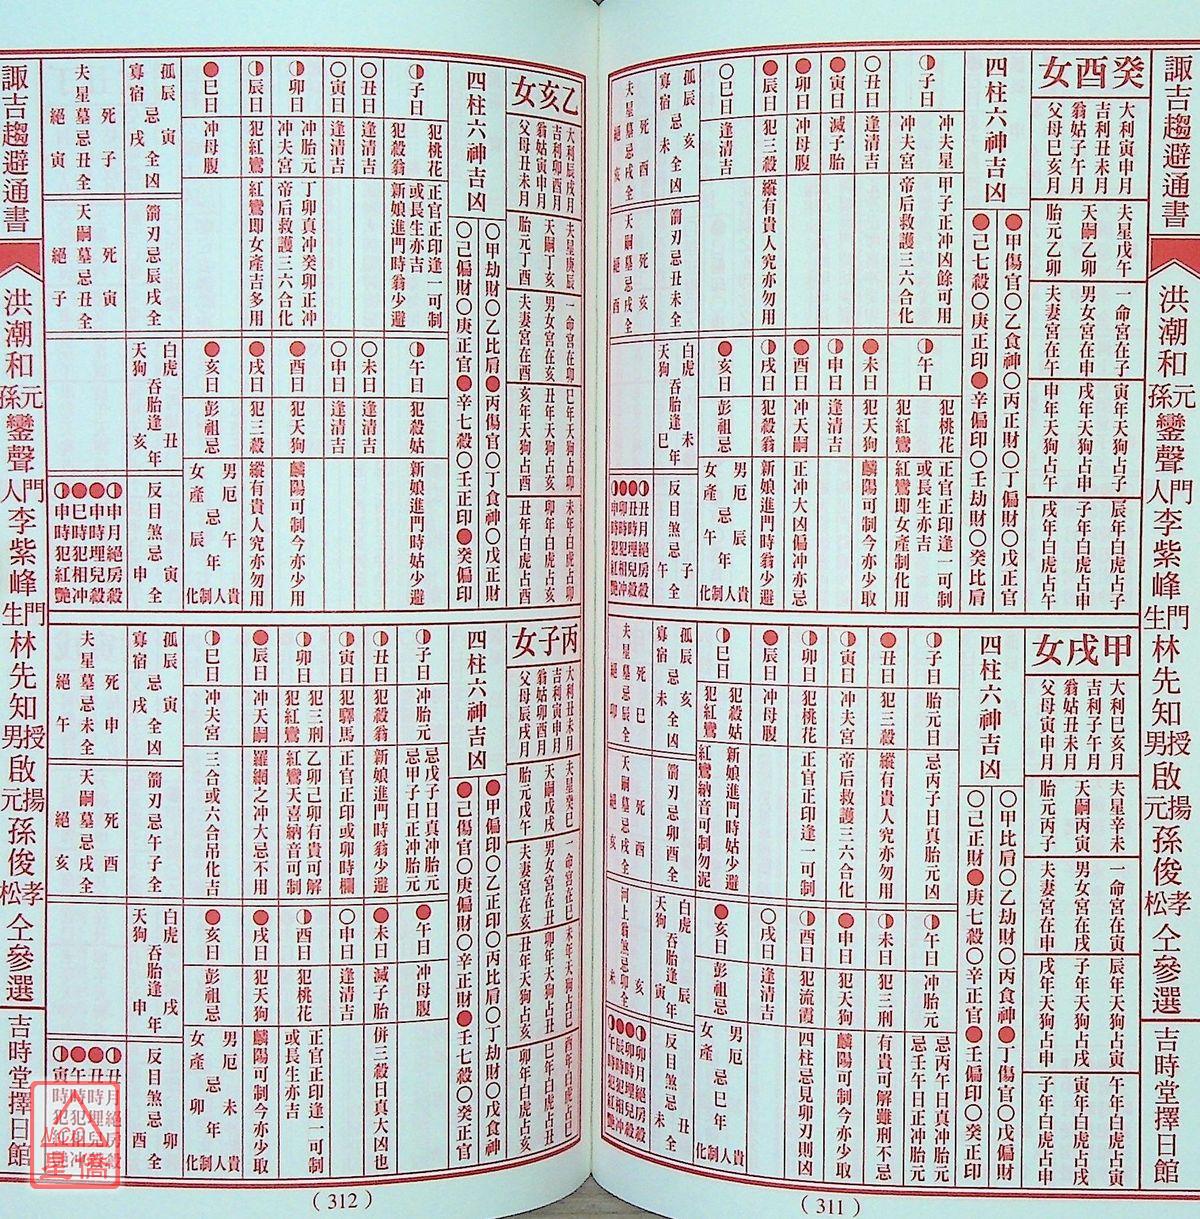 諏吉趨避通書
洪潮和
元孫
鑾聲
門人
李紫峰
門生
林先知
授男
啟
揚元
孫俊
孝松
仝參選
吉時堂擇日館
癸酉女
大利寅申月
吉利丑未月
翁姑子午月
父母巳亥月
夫星戊午
天嗣乙卯
胎元乙卯
一命宮在子
男女宮在申
夫妻宮在午
寅年天狗占子
戌年天狗占申
申年天狗占午
辰年白虎占子
子年白虎占申
戌年白虎占午
四柱六神吉凶
●甲傷官○乙食神○丙正財○丁偏財○戊正官
●己七殺○庚正印●辛偏印○壬劫財○癸比肩
子日
冲夫星
冲夫宮
甲子正冲凶餘可用
帝后救護三六合化
○丑日
逢清吉
●寅日
滅子胎
●卯日
冲母腹
●辰日
犯三殺
縱有貴人究亦勿用
○巳日
午日
犯桃花
犯紅鸞
正官正印逢一可制
或長生亦吉
紅鸞即女產制化用
●未日
犯天狗
麟陽可制今亦少取
申日
逢清吉
●酉日
冲天嗣
正冲大凶偏冲亦忌
戌日
犯殺翁
新娘進門時翁少避
●亥日
彭祖忌
男厄忌辰年
女產忌午年
貴人制化
孤辰忌亥
寡宿忌未
全凶
箭刃忌丑未全
白虎
天狗
吞胎逢未巳年
反目煞忌子午全
夫星死酉墓忌戌全絕亥
天嗣死亥墓忌戌全絕酉
丑月絕房殺
丑時埋兒殺
卯時犯相冲
申時犯紅艷
甲戌女
大利巳亥月
吉利子午月
翁姑丑未月
父母寅申月
夫星辛未
天嗣丙寅
胎元丙子
一命宮在寅
男女宮在戌
夫妻宮在申
辰年天狗占寅
子年天狗占戌
戌年天狗占申
午年白虎占寅
寅年白虎占戌
子年白虎占申
四柱六神吉凶
○甲比肩○乙劫財○丙食神●丁傷官○戊偏財
○己正財●庚七殺○辛正官●壬偏印○癸正印
子日
胎元日
忌丙子日真胎元凶
●丑日
犯三殺
縱有貴人究亦勿用
寅日
冲夫宮
帝后救護三六合化
卯日
犯桃花
正官正印逢一可制
●辰日
冲母腹
巳日
犯殺姑
犯紅鸞
新娘進門時姑少避
紅鸞納音可制勿泥
午日
冲胎元
忌丙午日真冲胎元
忌壬午日正冲胎元
未日
犯三刑
有貴可解雖刑不忌
●申日
犯天狗
麟陽可制今亦少取
酉日
犯流霞
四柱忌見卯刃則凶
○戌日
逢清吉
●亥日
彭祖忌
男厄
女產
忌巳年
貴人制化
孤辰忌亥
寡宿忌未
全凶
箭刃忌卯酉全
白虎
天狗
吞胎逢辰寅年
反目煞忌丑未全
夫星死巳墓忌辰全絕卯
天嗣死酉墓忌戌全絕亥
河上翁煞忌卯全
卯月絕房殺
卯時埋兒殺
辰時犯相冲
午時犯紅艷
(311)
乙亥女
大利辰戌月
吉利卯酉月
翁姑寅申月
父母丑未月
夫星庚辰
天嗣丁亥
胎元丁酉
一命宮在卯
男女宮在亥
夫妻宮在酉
巳年天狗占卯
丑年天狗占亥
亥年天狗占酉
未年白虎占卯
卯年白虎占亥
丑年白虎占酉
四柱六神吉凶
○甲劫財○乙比肩●丙傷官○丁食神○戊正財
○己偏財○庚正官●辛七殺○壬正印●癸偏印
子日
犯桃花
犯殺翁
正官正印逢一可制
或長生亦吉
新娘進門時翁少避
○丑日
逢清吉
○寅日
逢清吉
卯日
冲胎元
冲夫宮
丁卯真冲癸卯正冲
帝后救護三六合化
辰日
犯紅鸞
紅鸞即女產吉多用
●巳日
冲母腹
午日
犯殺姑
新娘進門時姑少避
○未日
逢清吉
○申日
逢清吉
●酉日
犯天狗
麟陽可制今亦少用
●戌日
犯三殺
縱有貴人究亦勿用
●亥日
彭祖忌
男厄忌午年
女產忌辰年
貴人制化
孤辰忌寅
寡宿忌戌
全凶
箭刃忌辰戌全
白虎
天狗
吞胎逢丑亥年
反目煞忌寅申全
夫星死子墓忌丑全絕寅
天嗣死寅墓忌丑全絕子
申月絕房殺
申時埋兒殺
巳時犯相冲
申時犯紅艷
丙子女
大利丑未月
吉利寅申月
翁姑卯酉月
父母辰戌月
夫星癸巳
天嗣戊戌
胎元戊午
一命宮在巳
男女宮在丑
夫妻宮在亥
未年天狗占巳
卯年天狗占丑
丑年天狗占亥
酉年白虎占巳
巳年白虎占丑
卯年白虎占亥
四柱六神吉凶
●甲偏印○乙正印○丙比肩○丁劫財○戊食神
●己傷官○庚偏財○辛正財●壬七殺○癸正官
子日
冲胎元
忌戊子日真冲胎元
忌甲子日正冲胎元
丑日
犯殺翁
新娘進門時翁少避
寅日
犯驛馬
正官正印或卯時欄
卯日
犯三刑
犯紅鸞
乙卯己卯有貴可解
紅鸞天喜納音可制
●辰日
冲天嗣
羅網之冲大忌不用
巳日
冲夫宮
三合或六合吊化吉
●午日
冲母腹
●未日
滅子胎
併三殺日真大凶也
○申日
逢清吉
酉日
犯桃花
正官正印逢一可制
或長生亦吉
●戌日
犯天狗
麟陽可制今亦少取
●亥日
彭祖忌
男厄忌未年
女產忌卯年
貴人制化
孤辰忌寅
寡宿忌戌
全凶
箭刃忌午子全
白虎
天狗
吞胎逢戌申年
反目煞忌卯酉全
夫星死申墓忌未全絕午
天嗣死酉墓忌戌全絕亥
(312)
諏吉趨避通書
洪潮和
元孫
鑾聲
門人
李紫峰
門生
林先知
授男
啟
揚元
孫俊
孝松
仝參選
吉時堂擇日館
星僑